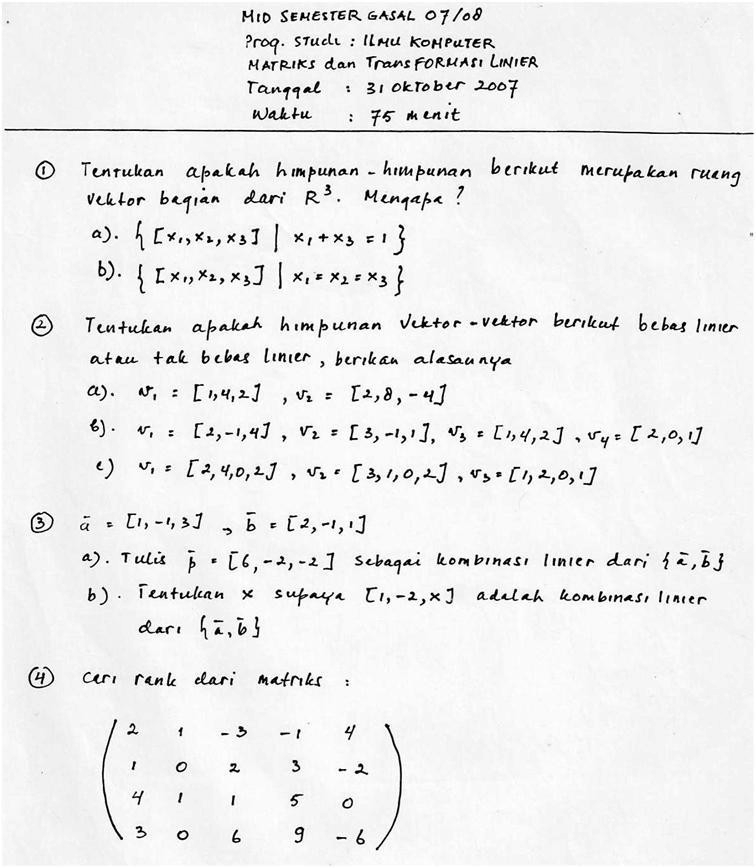 MID SEMESTER GASAL 07/08
Prog. Studi : ILMU KOMPUTER
MATRIKS dan TransFORMASI LINIER
Tanggal : 31 Oktober 2007
Waktu : 75 menit
① Tentukan apakah himpunan-himpunan berikut merupakan ruang
vektor bagian dari R³. Mengapa?
a). { [x₁,x₂,x₃] | x₁+x₃ = 1 }
b). { [x₁,x₂,x₃] | x₁ = x₂ = x₃ }
② Tentukan apakah himpunan vektor-vektor berikut bebas linier
atau tak bebas linier, berikan alasannya
a). v₁ = [1,4,2] , v₂ = [2,8,-4]
b). v₁ = [2,-1,4] , v₂ = [3,-1,1], v₃ = [1,4,2] , v₄ = [2,0,1]
c) v₁ = [2,4,0,2] , v₂ = [3,1,0,2] , v₃ = [1,2,0,1]
③ ā = [1,-1,3] , b̄ = [2,-1,1]
a). Tulis p̄ = [6,-2,-2] sebagai kombinasi linier dari {ā,b̄}
b). Tentukan x supaya [1,-2,x] adalah kombinasi linier
dari {ā,b̄}
④ Cari rank dari matriks :
2 1 -3 -1 4
1 0 2 3 -2
4 1 1 5 0
3 0 6 9 -6